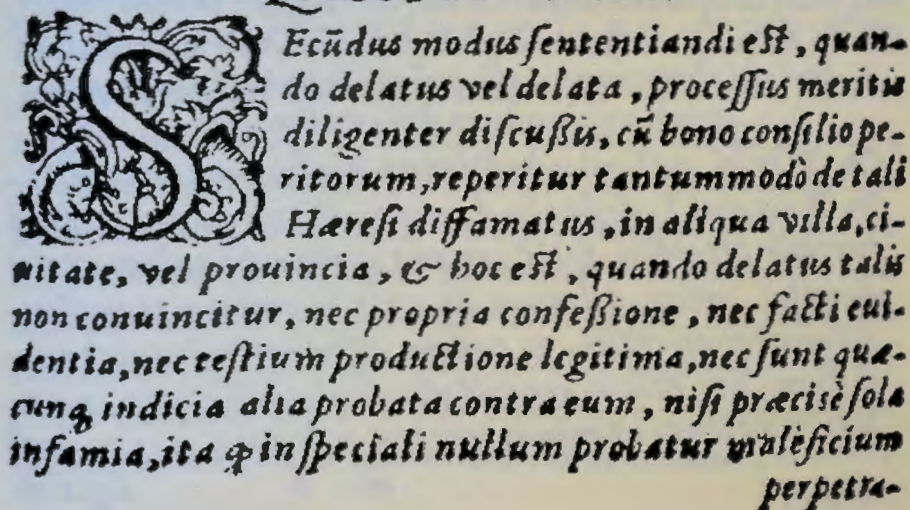 SEcūdus modus ſententiandi eſt, quan-
do delatus vel delata, proceſſus meritis
diligenter diſcuſsis, cū bono conſilio pe-
ritorum, reperitur tantummodò de tali
Hæreſi diffamatus, in aliqua villa, ci-
uitate, vel prouincia, & hoc eſt, quando delatus talis
non conuincitur, nec propria confeſsione, nec facti eui-
dentia, nec teſtium productione legitima, nec ſunt quæ-
cunqꝫ indicia alia probata contra eum, niſi præcisè ſola
infamia, ita ꝙ in ſpeciali nullum probatur maleficium
perpetra-